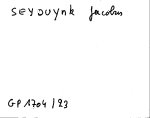 SEYDUYNK Jacobus
GP 1704 / 23